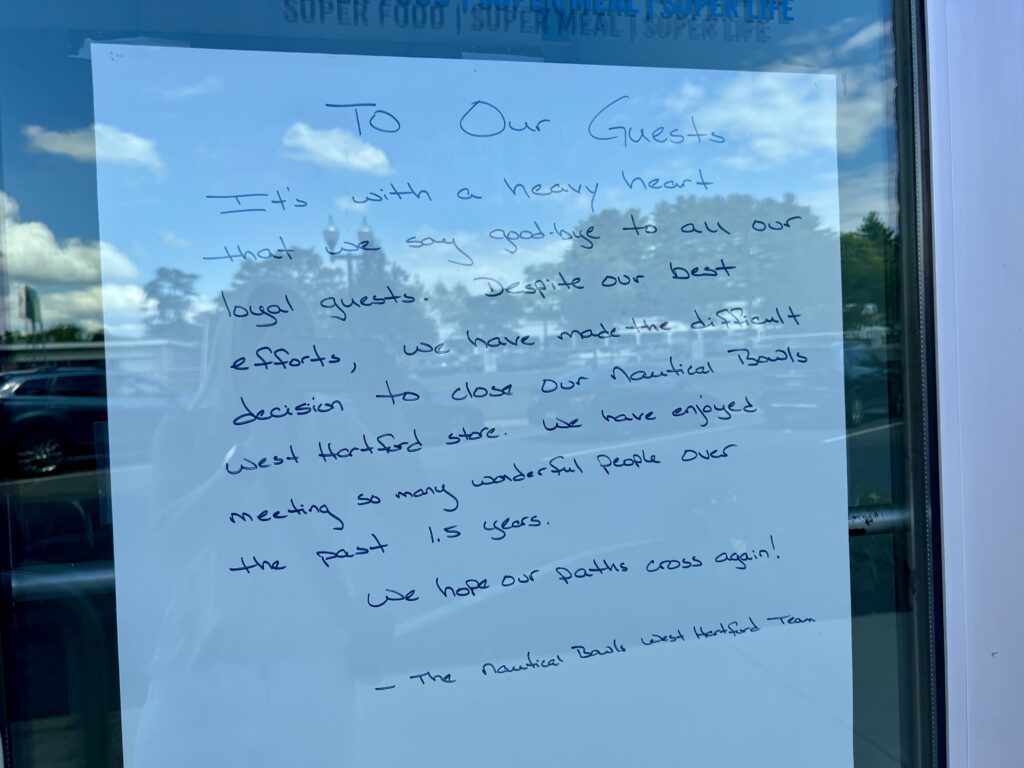 SUPER FOOD | SUPER MEAL | SUPER LIFE
To Our Guests
It's with a heavy heart
that we say good-bye to all our
loyal guests. Despite our best
efforts, we have made the difficult
decision to close our Nautical Bowls
West Hartford store. We have enjoyed
meeting so many wonderful people over
the past 1.5 years.
We hope our paths cross again!
- The Nautical Bowls West Hartford Team